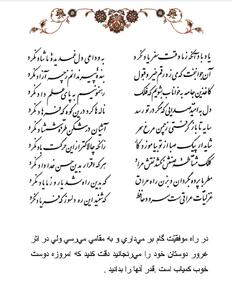 یاد باد آنکه ز ما وقت سفر یاد نکرد به وداعی دل غمدیده ما شاد نکرد
آن جوانبخت که می زد رقم خیر و قبول بنده پیر ندانم ز چه آزاد نکرد
کاغذین جامه به خوناب بشویم که فلک رهنمونیم به پای علم داد نکرد
دل به امید صدایی که مگر در تو رسد ناله ها کرد درین کوه که فرهاد نکرد
سایه تا باز گرفتی ز چمن مرغ سحر آشیان در شکن طره شمشاد نکرد
شاید ار پیک صبا از تو بیاموزد کار زانکه چالاکتر از این حرکت باد نکرد
کلک مشاطه صنعش نکشد نقش مراد هر که اقرار بدین حسن خداداد نکرد
مطربا پرده بگردان و بزن راه عراق که بدین راه بشد یار و ز ما یاد نکرد
غزلیات عراقیست سرود حافظ که شنید این ره دلسوز که فریاد نکرد
در راه موفقيّت گام بر مي‌داري و به مقامي مي‌رسي ولي در اثر
غرور دوستان خود را مي‌رنجانيد دقت كنيد كه امروزه دوست
خوب كمياب است .قدر آنها را بدانيد .